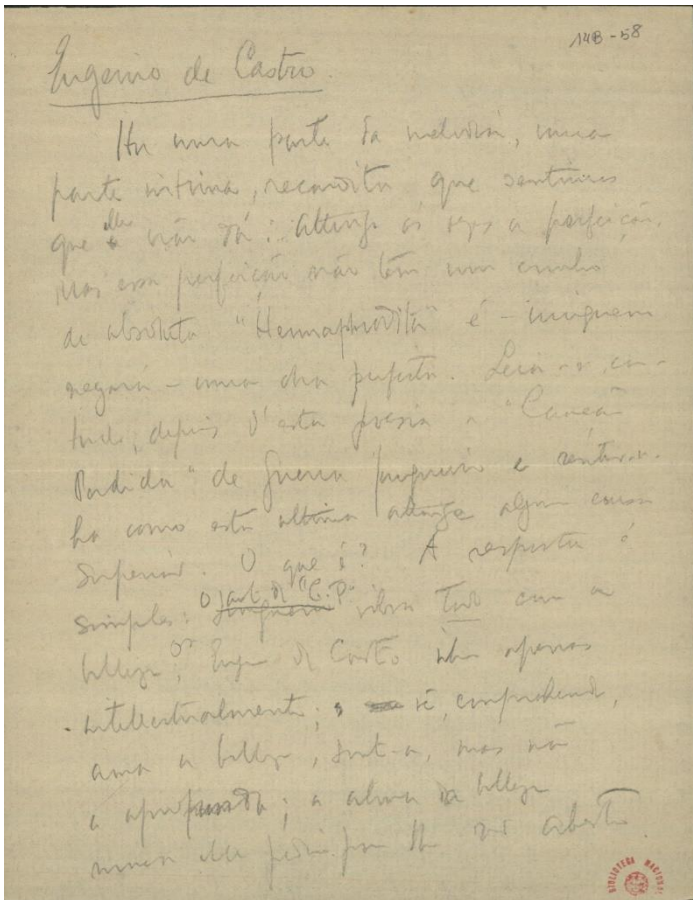 14B - 58
Eugenio de Castro.
Ha uma parte da melodia, uma
parte intima, recondita que sentimos
que elle não dá: Attinge ás vezes a perfeição.
Mas essa perfeição não têm um cunho
de absoluta "Hermaphrodita" é - ninguem
negará - uma obra perfeita. Leia-se, con-
tudo, depois d'esta poesia a "Canção
Perdida" de Guerra Junqueiro e
como esta ultima attinge alguma cousa
superior. O que é? A resposta é
simples: O "C. P." vibra todo com a
belleza; Eug de Castro vibra apenas
intellectualmente; vê, comprehende,
ama a belleza, sente-a, mas não
a aprofunda; a alma da belleza
nunca elle
BIBLIOTECA NACIONAL